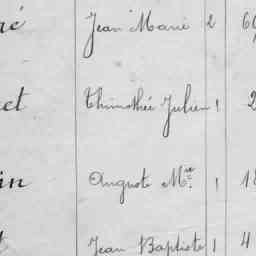 ré Jean Marie 2 60
et Thimothée Julien 1 2
in Auguste Mie 1 18
Jean Baptiste 1 4